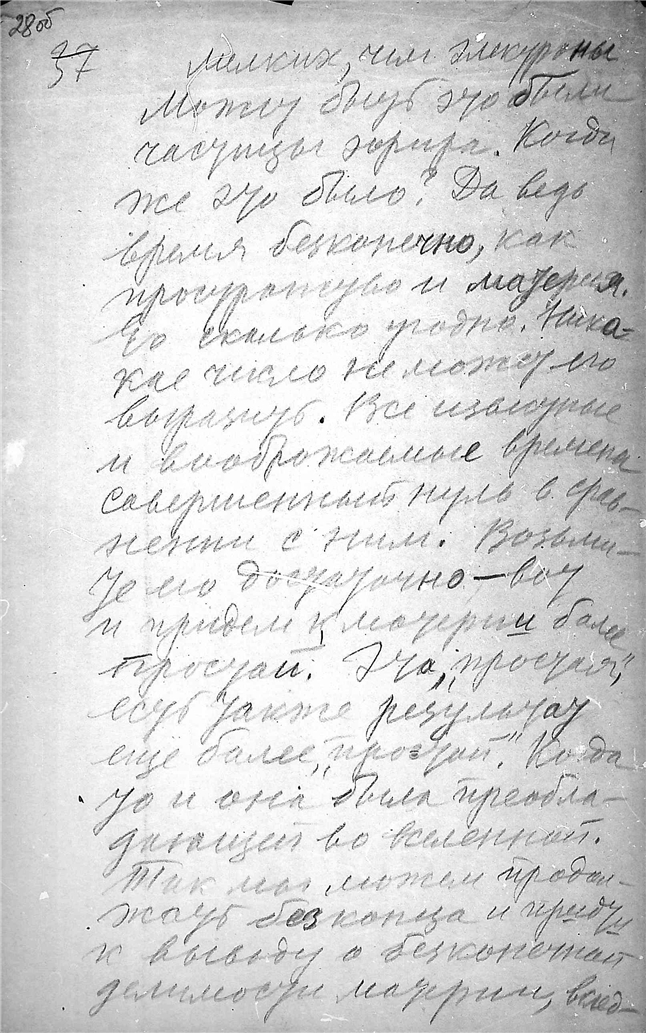 28об
37
мелких, чем электроны
Может быть это были
частицы эфира. Когда
же это было? Да ведь
время безконечно, как
пространство и материя.
Его сколько угодно. Ника-
кое число не может его
выразить. Все известные
и воображаемые времена
совершенный нуль в срав-
нении с ним. Возьми-
те его достаточно – вот
и придем к материи более
простой. Эта „простая"
есть также результат
еще более „простой". Когда
то и она была преобла-
дающей во вселенной.
Так мы можем продол-
жать без конца и придти
к выводу о безконечной
делимости материи, вслед-